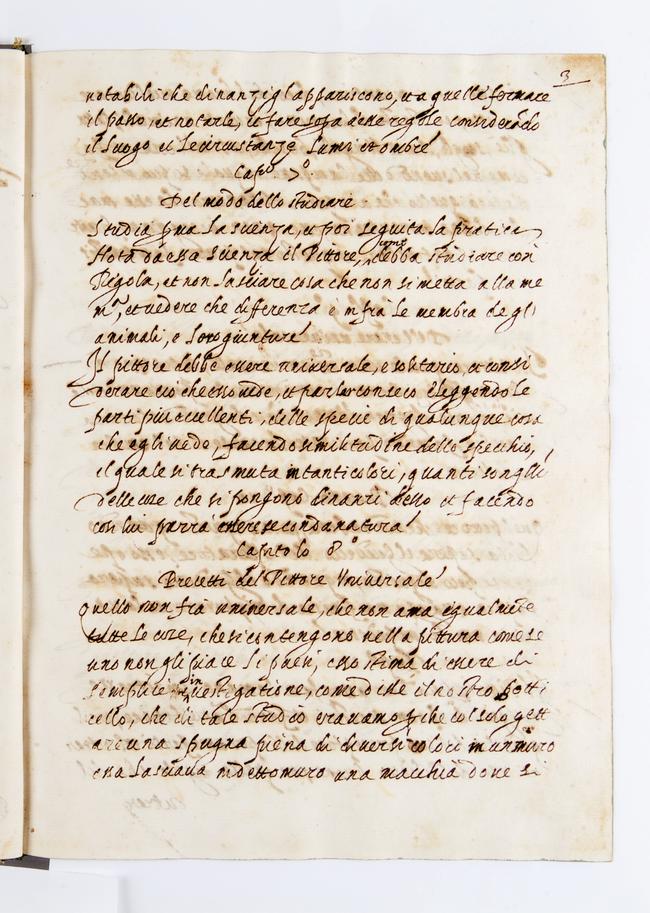 3
notabili che dinanzi gl'appariscono, et a quelle fermare
il passo, et notarle, et fare sopra d'esse regole considerando
il luogo et le circustanze lumi et ombre
Capo. 7o.
Del modo dello studiare
Studia pria la scienza, et poi seguita la pratica
Nota da essa scienza il Pittore, come debba studiare con
Regola, et non lasciare cosa che non si metta alla me
ma, et vedere che differenza è infrà le membra degli
animali, e loro giunture
Il pittore debbe essere universale, e solitario, et consi
derare ciò che esso vede, et parlar con seco eleggendo le
parti più eccellenti, delle specie di qualunque cosa
che egli vede, facendo similitudine dello specchio,
il quale si trasmuta in tanti colori, quanti son gli
delle cose che si pongono dinanzi desso et facendo
così lui parrà essere seconda natura
Capitolo 8o
Precetti del Pittore Universale
Quello non fia universale, che non ama egualmente
tutte le cose, che si contengono nella pittura come se
uno non gli piace li paesi, esso stima di essere di
semplice investigatione, come disse il nostro botti
cello, che di tale studio eravamo perche col solo gett
are una spugna piena di diversi colori in un muro
essa lasciava in detto muro una macchia dove si